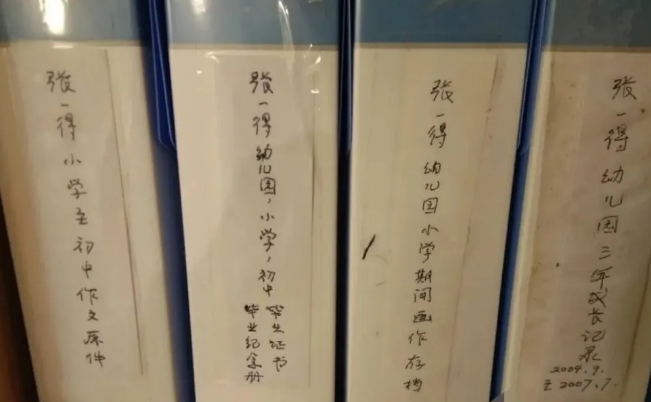 张一得小学至初中作文原件
张一得幼儿园，小学，初中
毕业证书
毕业纪念册
张一得幼儿园小学期间画作存档
张一得幼儿园三年成长记录
2004.9.
至2007.7.